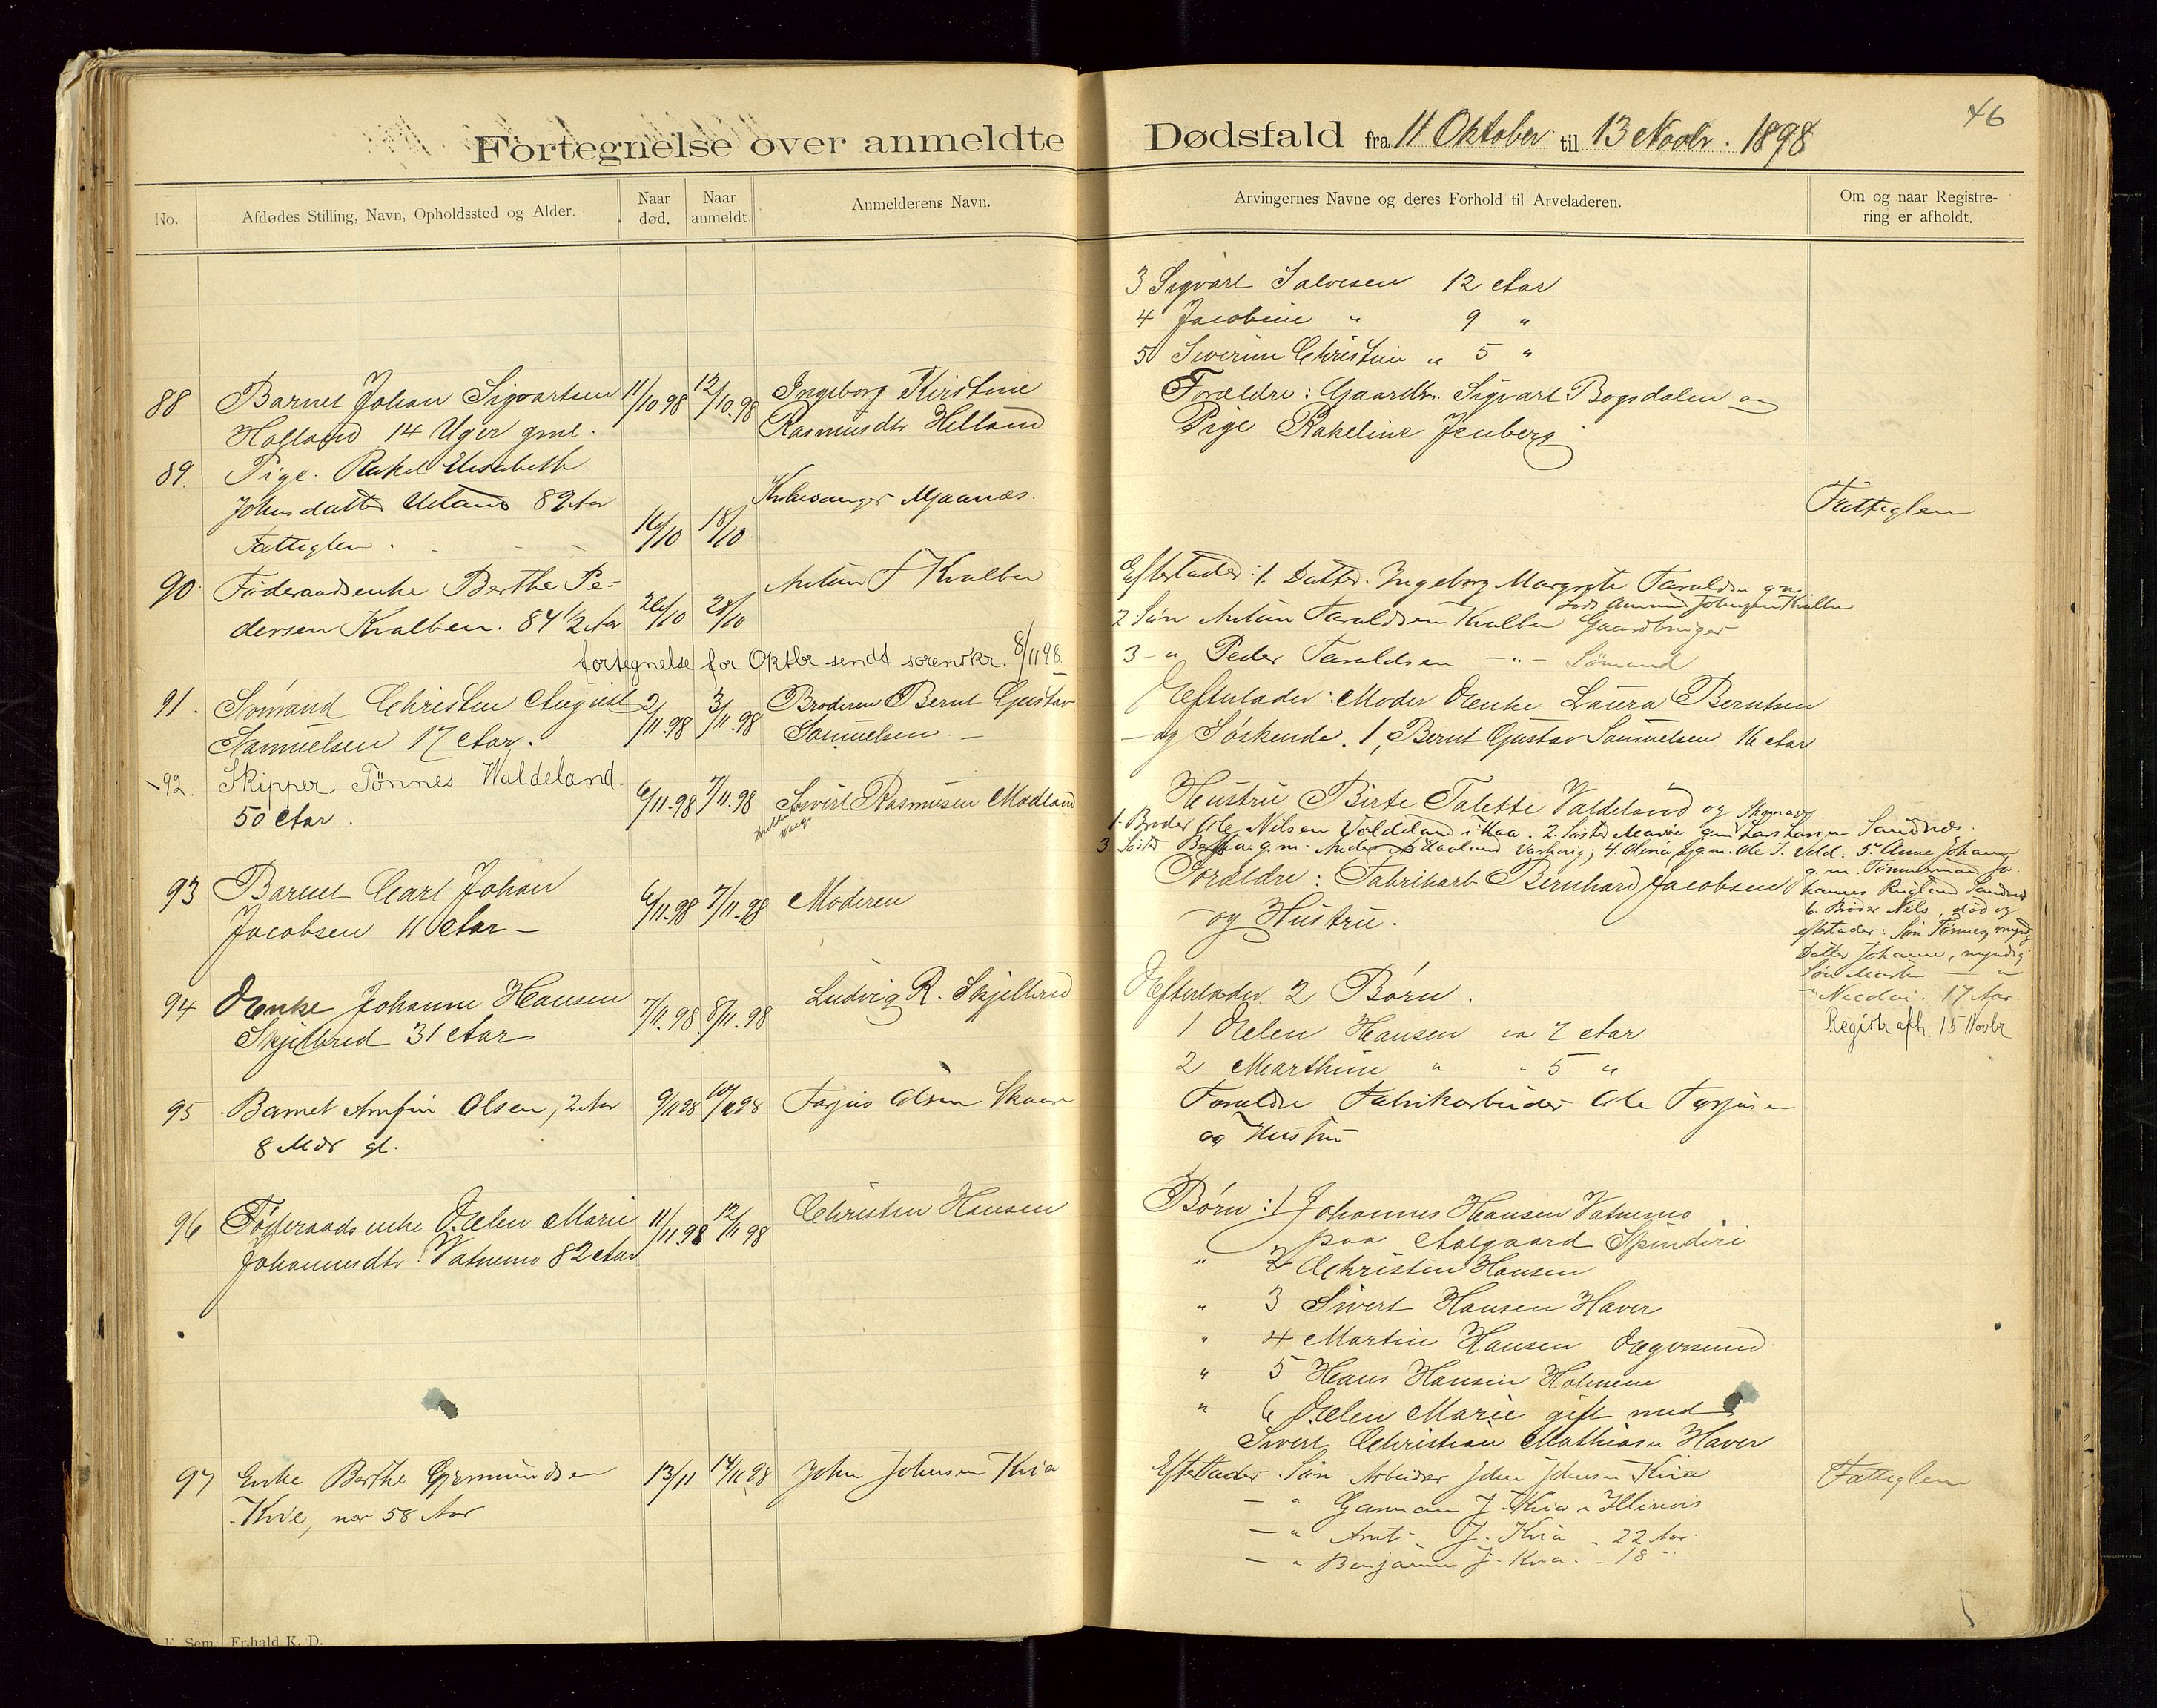 46
Fortegnelse over anmeldte Dødsfald fra 11 Oktober til 13 Novbr. 1898
No.
Afdødes Stilling, Navn, Opholdssted og Alder.
Naar død.
Naar anmeldt
Anmelderens Navn.
Arvingernes Navne og deres Forhold til Arveladeren.
Om og naar Registre-
ring er afholdt.
3 Sigvart Salvesen 12 Aar
4 Jacobine " 9 "
5 Severine Christine " 5 "
88 Barnet Johan Sigvartsen 11/10 98 12/10.98 Ingeborg Kirstine
Holland 14 Uger gml. Rasmusdtr Helland
Forældre: Gaardbr. Sigvart Bogsdalen og
Pige Rakeline Jenberg
89. Pige. Rakel Elisabeth
Johnsdatter Ueland 82 Aar
Fattiglem. 16/10 18/10
Fattiglem
90. Föderaadsenke Berthe Pe-
dersen Kvalben. 84 1/2 Aar 26/10 28/10 Antón T Kvalben
Efterlader: 1. Datter. Ingeborg Margrete Taraldsen gm.
2 Sön Anton Taraldsen Kvalben Gaardbruger
3 - " Peder Taraldsen - " - Sömand
fortegnelse for Oktbr sendt sorenskr. 8/11 98.
91. Sómand Christen August 2/11.98 3/11.98 Broderen Bernt Gustav
Samuelsen 17 Aar. Samuelsen -
Efterlader: Moder Enke Laura Berntsen
og Søskende. 1, Bernt Gustav Samuelsen 16 Aar
92. Skipper Tönnes Waldeland. 6/11.98 7/11.98 Sivert Rasmusen Modland
50 Aar.
Hustru Birte Talette Valdeland og
1. Broder Ole Nilsen Valdeland i Haa. 2. Söster Marie gm Lars Larsen Sandnæs.
3. Söster Berta g.m. 5. Anne Johanne
g.m. Tömmermand Jo-
hannes Sandnæs
6. Broder Nils, död og
efterlader: Sön Tönnes, myndig
Datter Johanne, myndig
Sön Martin - "
- " Nicolai. 17 Aar.
Registr afh. 15 Novbr
93 Barnet Carl Johan 6/11.98 7/11.98 Moderen
Jacobsen 11 Aar -
Foraldre: Fabrikarb Bernhard Jacobsen
- og Hustru.
94 Enke Johanne Hansen 7/11.98 8/11.98 Ludvig R. Skjelbred
Skjelbred 31 Aar
Efterlader 2 Børn.
1 Elen Hansen ca 7 Aar
2 Marthine " " 5 "
95 Barnet Arnfin Olsen, 2 Aar 9/11 98 10/11 98 Tarjus Olsen
8 Mdr gl.
Foraldre Fabrikarbeider Ole Tarjusen
og Hustru
96 Föderaads enke Elen Marie 11/11 98 12/11 98 Christen Hansen
Johannesdtr Vatnemo 82 Aar
Børn: 1 Johannes Hansen Vatnemo
paa Aalgaard Spinderi
" 2 Christen Hansen
" 3 Sivert Hansen Haver
" 4 Martin Hansen Egersund
" 5 Hans Hansen Holmene
" 6 Elen Marie gift med
Sivert Christian Mathiasen Haver
97 Enke Berthe Gjermundsen 13/11 14/11 98 John Johnsen Kvia
Kvie, nær 58 Aar
Efterlader Sön Arbeider John Johnsen Kvia
- " Garman J. Kvia i Illinois
- " Arnt J. Kvia " 22 Aar.
- " Benjamin J. Kvia. " 18 "
Fattiglem